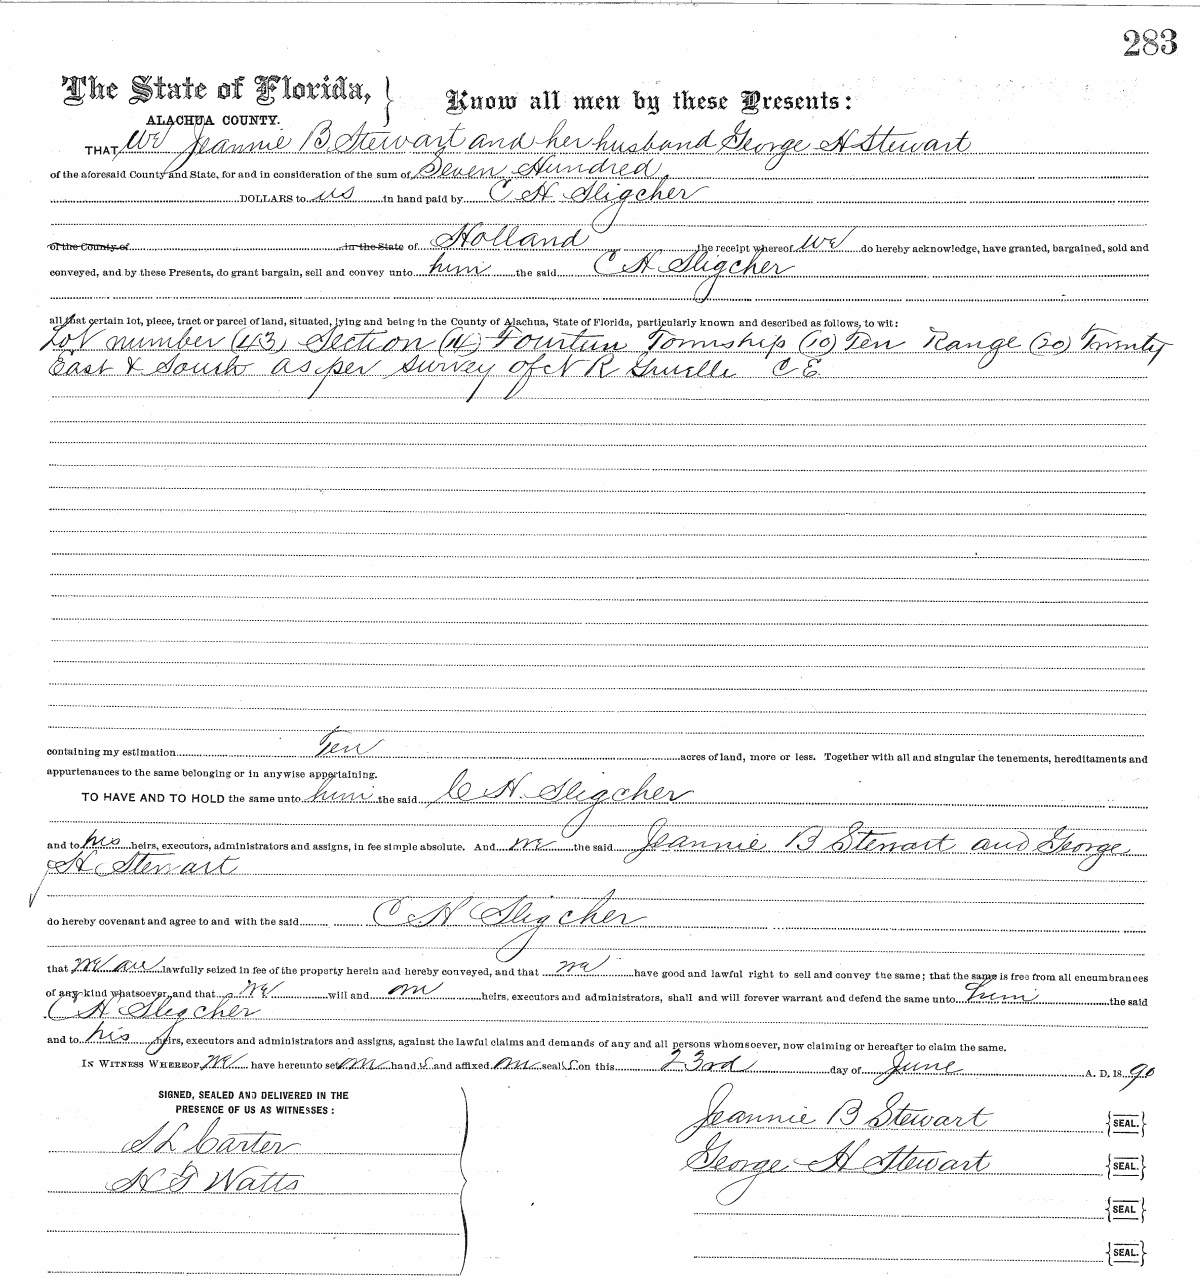 283
The State of Florida,
Know all men by these Presents:
ALACHUA COUNTY.
THAT We Jeannie B. Stewart and her husband George H Stewart
of the aforesaid County and State, for and in consideration of the sum of Seven Hundred
DOLLARS to us in hand paid by C H Sligcher
of the County of in the State of Holland the receipt whereof we do hereby acknowledge, have granted, bargained, sold and
conveyed, and by these Presents, do grant bargain, sell and convey unto him the said C H Sligcher
all that certain lot, piece, tract or parcel of land, situated, lying and being in the County of Alachua, State of Florida, particularly known and described as follows, to wit:
Lot number (43) Section (14) Fourteen Township (10) Ten Range (20) Twenty
East & South as per survey of N R Gruelle C E
containing my estimation Ten acres of land, more or less. Together with all and singular the tenements, hereditaments and
appurtenances to the same belonging or in anywise appertaining.
TO HAVE AND TO HOLD the same unto him the said C H. Sligcher
and to his heirs, executors, administrators and assigns, in fee simple absolute. And we the said Jeannie B Stewart and George
H Stewart
do hereby covenant and agree to and with the said C H Sligcher
that we are lawfully seized in fee of the property herein and hereby conveyed, and that we have good and lawful right to sell and convey the same; that the same is free from all encumbrances
of any kind whatsoever, and that we will and our heirs, executors and administrators, shall and will forever warrant and defend the same unto him the said
C H Sligcher
and to his heirs, executors and administrators and assigns, against the lawful claims and demands of any and all persons whomsoever, now claiming or hereafter to claim the same.
IN WITNESS WHEREOF, we have hereunto set our hand s and affixed our seal s on this 23rd day of June A. D. 18 90
SIGNED, SEALED AND DELIVERED IN THE
PRESENCE OF US AS WITNESSES:
Jeannie B Stewart SEAL.
S L Carter
George H Stewart SEAL.
H F Watts
SEAL
SEAL.